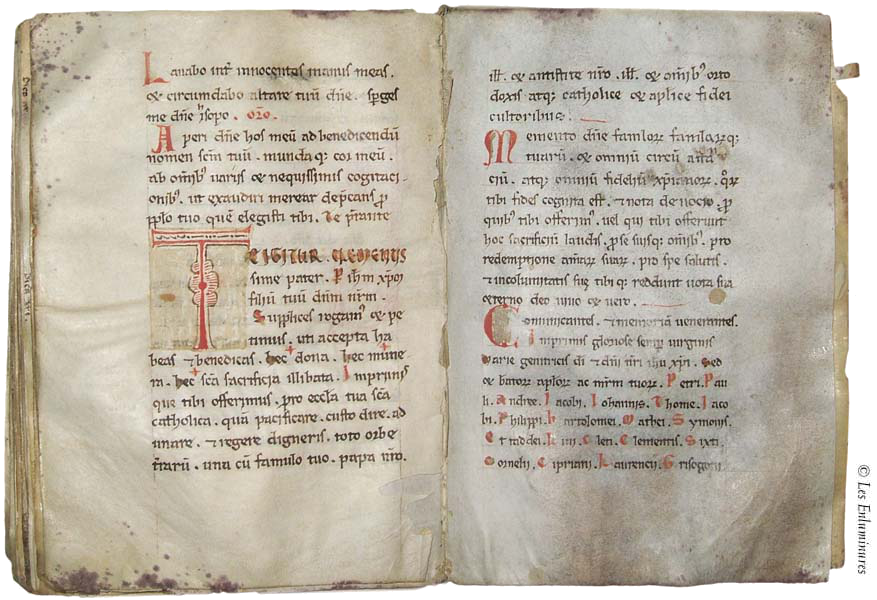 Lavabo int̄ innocentes manus meas.
& circumdabo altare tuū dn̄e. Sp̄ges
me dn̄e ysopo. oro.
Aperi dn̄e hos meū ad benedicendū
nomen scm̄ tuū. munda q; cor meū.
ab omīb; variis & nequissimis cogitaci
onib;. ut exaudiri merear dep̄cans p̄
pplo tuo quē elegisti tibi. Te p̄stante
TE IGITUR CLEMENTIS
sime pater. P ihm xpm
filiū tuū dnm nrm.
Supplices rogam' & pe
timus. uti accepta ha
beas & benedicas. hec dona. hec mune
ra. hec scā sacrificia illibata. Imprimis
que tibi offerimus. pro eccl̄a tua scā
catholica. quā pacificare. custodire. ad
unare. & regere digneris. toto orbe
t̄rarū. una cū famulo tuo. papa nr̄o.
ill. & antistite nr̄o. ill. & omīb; orto
doxis atq; catholice & aplice fidei
cultoribus.
Memento dn̄e famulor famularq;
tuarū. & omniū circū
ciū. atq; omniū fideliū xp̄ianor. q̄r
tibi fides cognita est. & nota devocio. p
quib; tibi offerim'. vel qui tibi offerunt
hoc sacrificiū laudis. p se suisq; omīb;. pro
redemptione animar suar. pro spe salutis.
& incolumitatis sue tibi q; reddunt vota sua
eterno deo vivo & vero.
Comunicantes. & memoriā venerantes.
Inprimis gloriose semp virginis
Marie genitricis di & dn̄i nr̄i ihu xp̄i. Sed
& bator aplor ac mr̄m tuor. Petri. Pau
li. Andree. Iacobi. Iohannis. Thome. Iaco
bi. Philippi. bartolomei. Mathei. Symonis.
Et taddei. Lini. Cleti. Clementis. Sixti.
Cornelii. Cipriani. Laurencii. Grisogoni.
© Les Enluminures